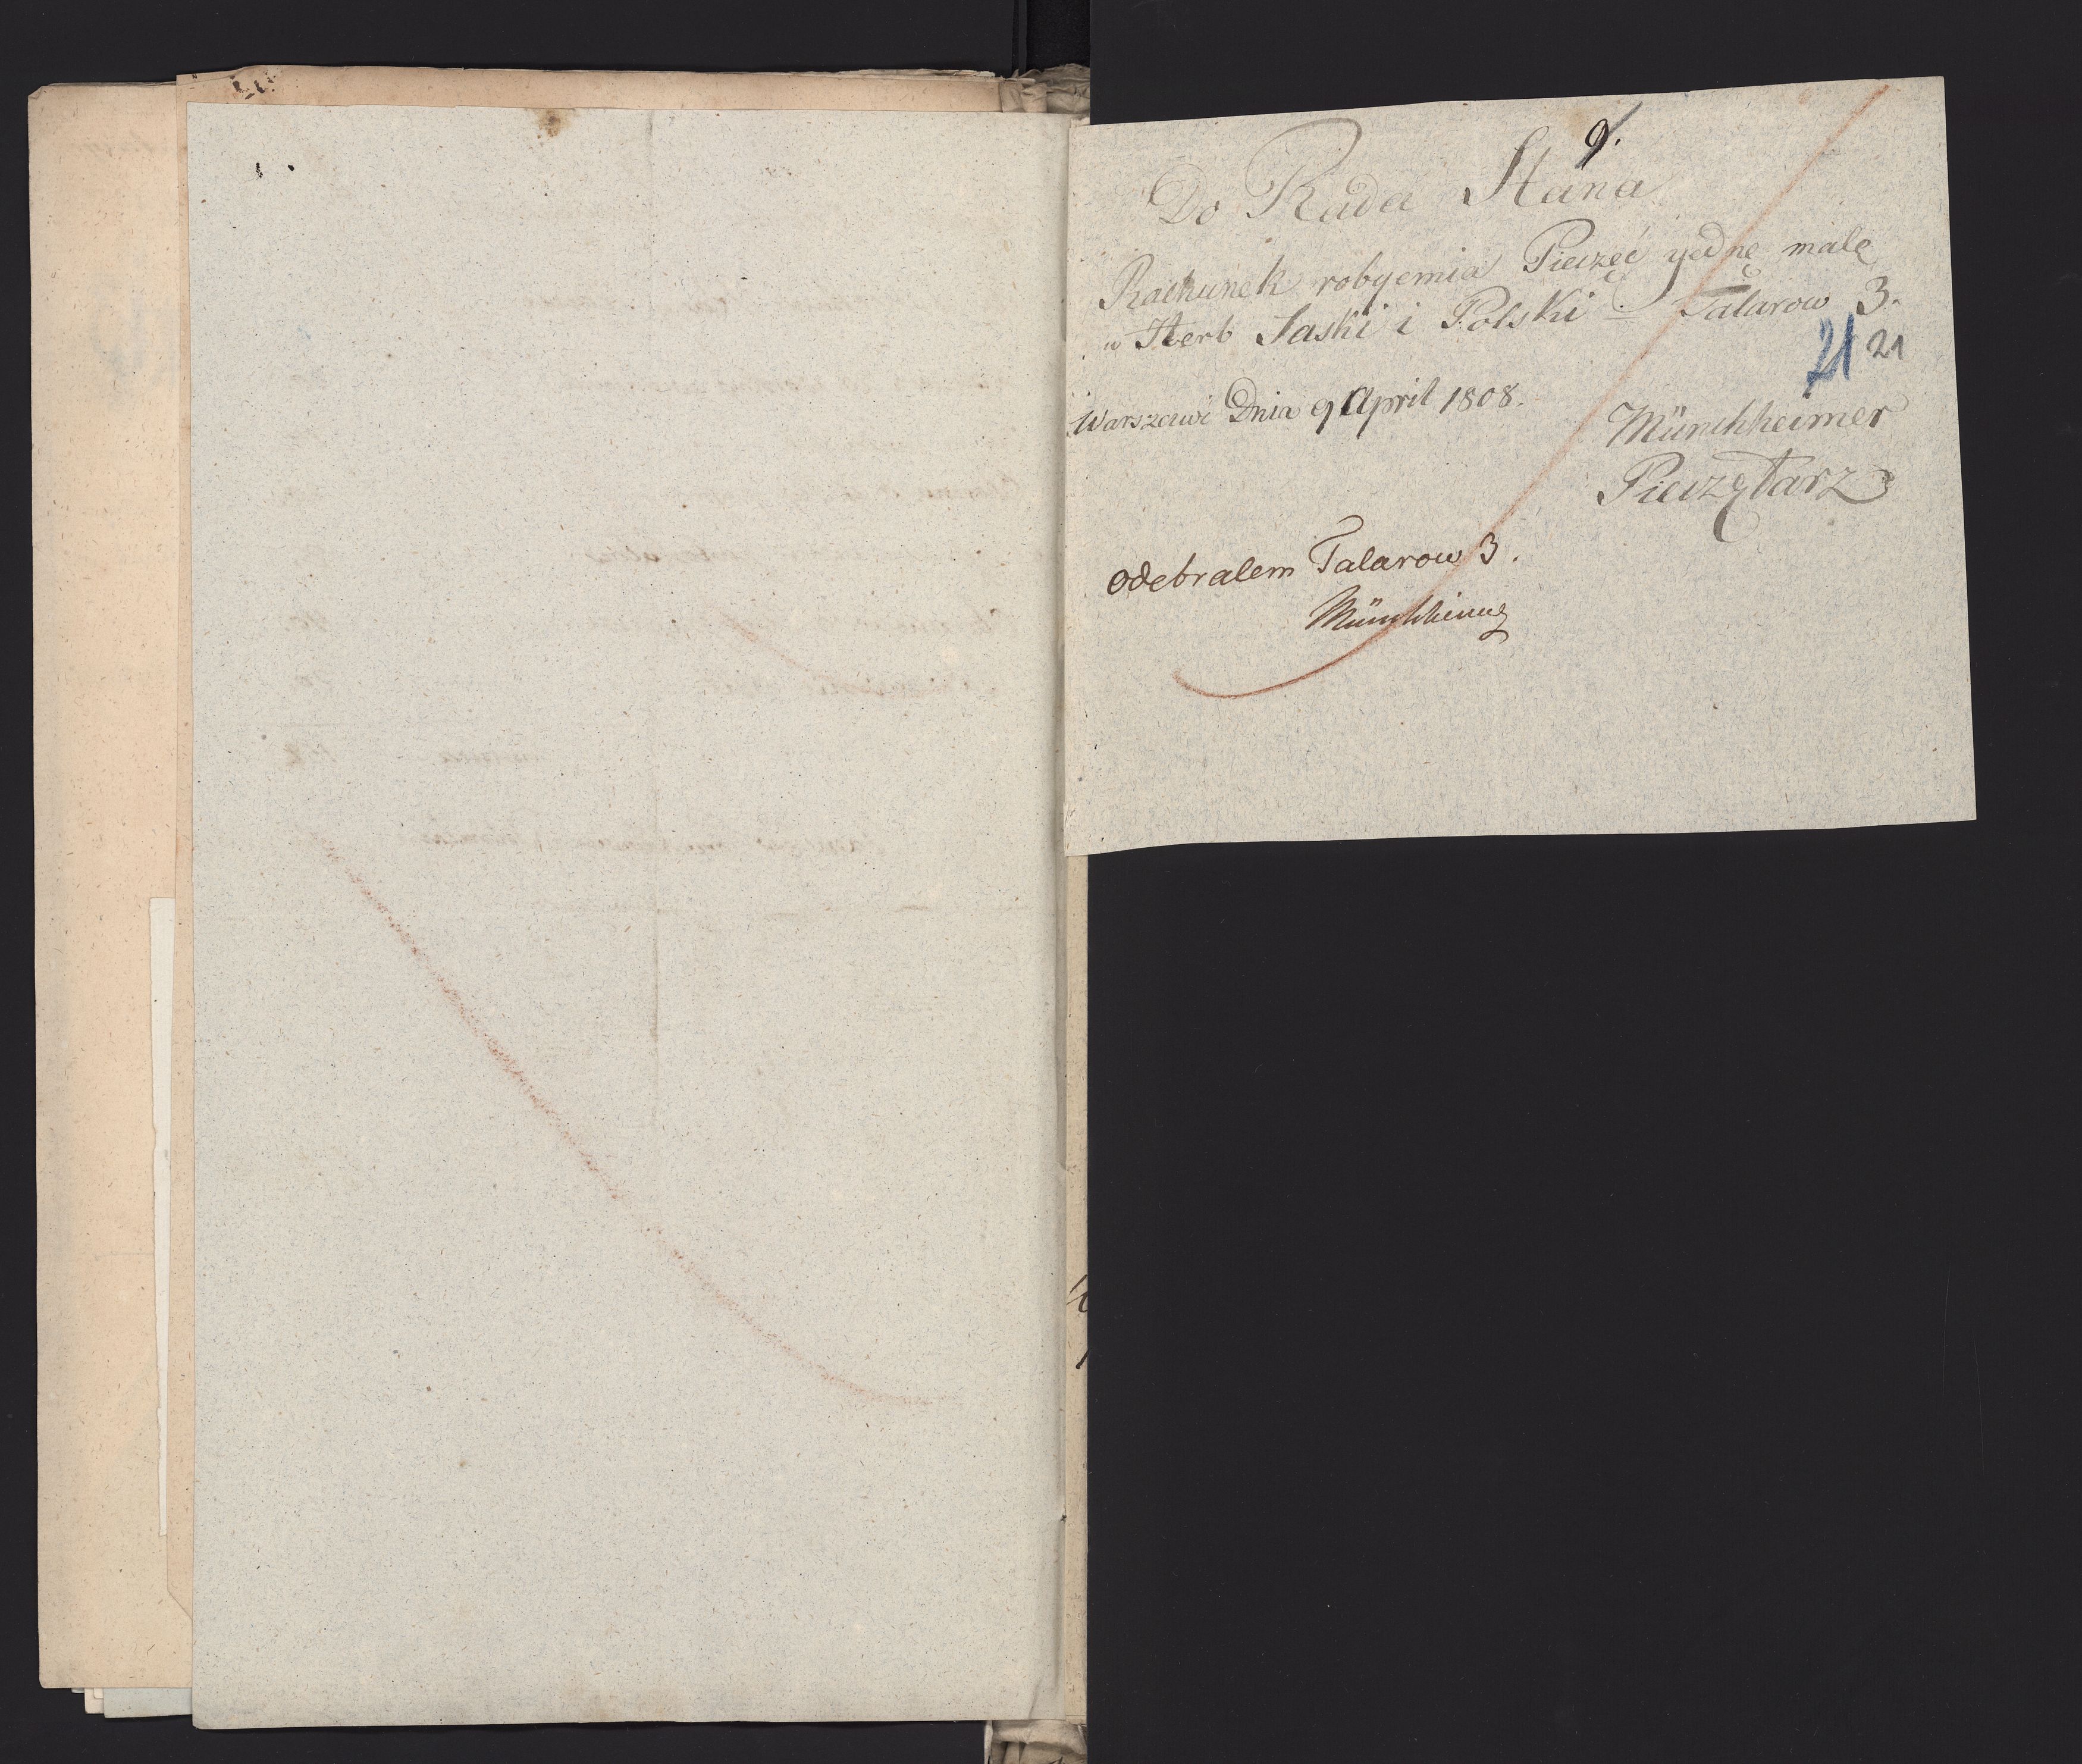 9.
Do Rada Stana
Rachunek robyemia Pieczęć yednę malę
w Herb Saski i Polski = Talarow 3.
21 21
Warszawi Dnia 9 April 1808.
Münchheimer
Pieczętarz
odebralem Talarow 3.
Münchheimer